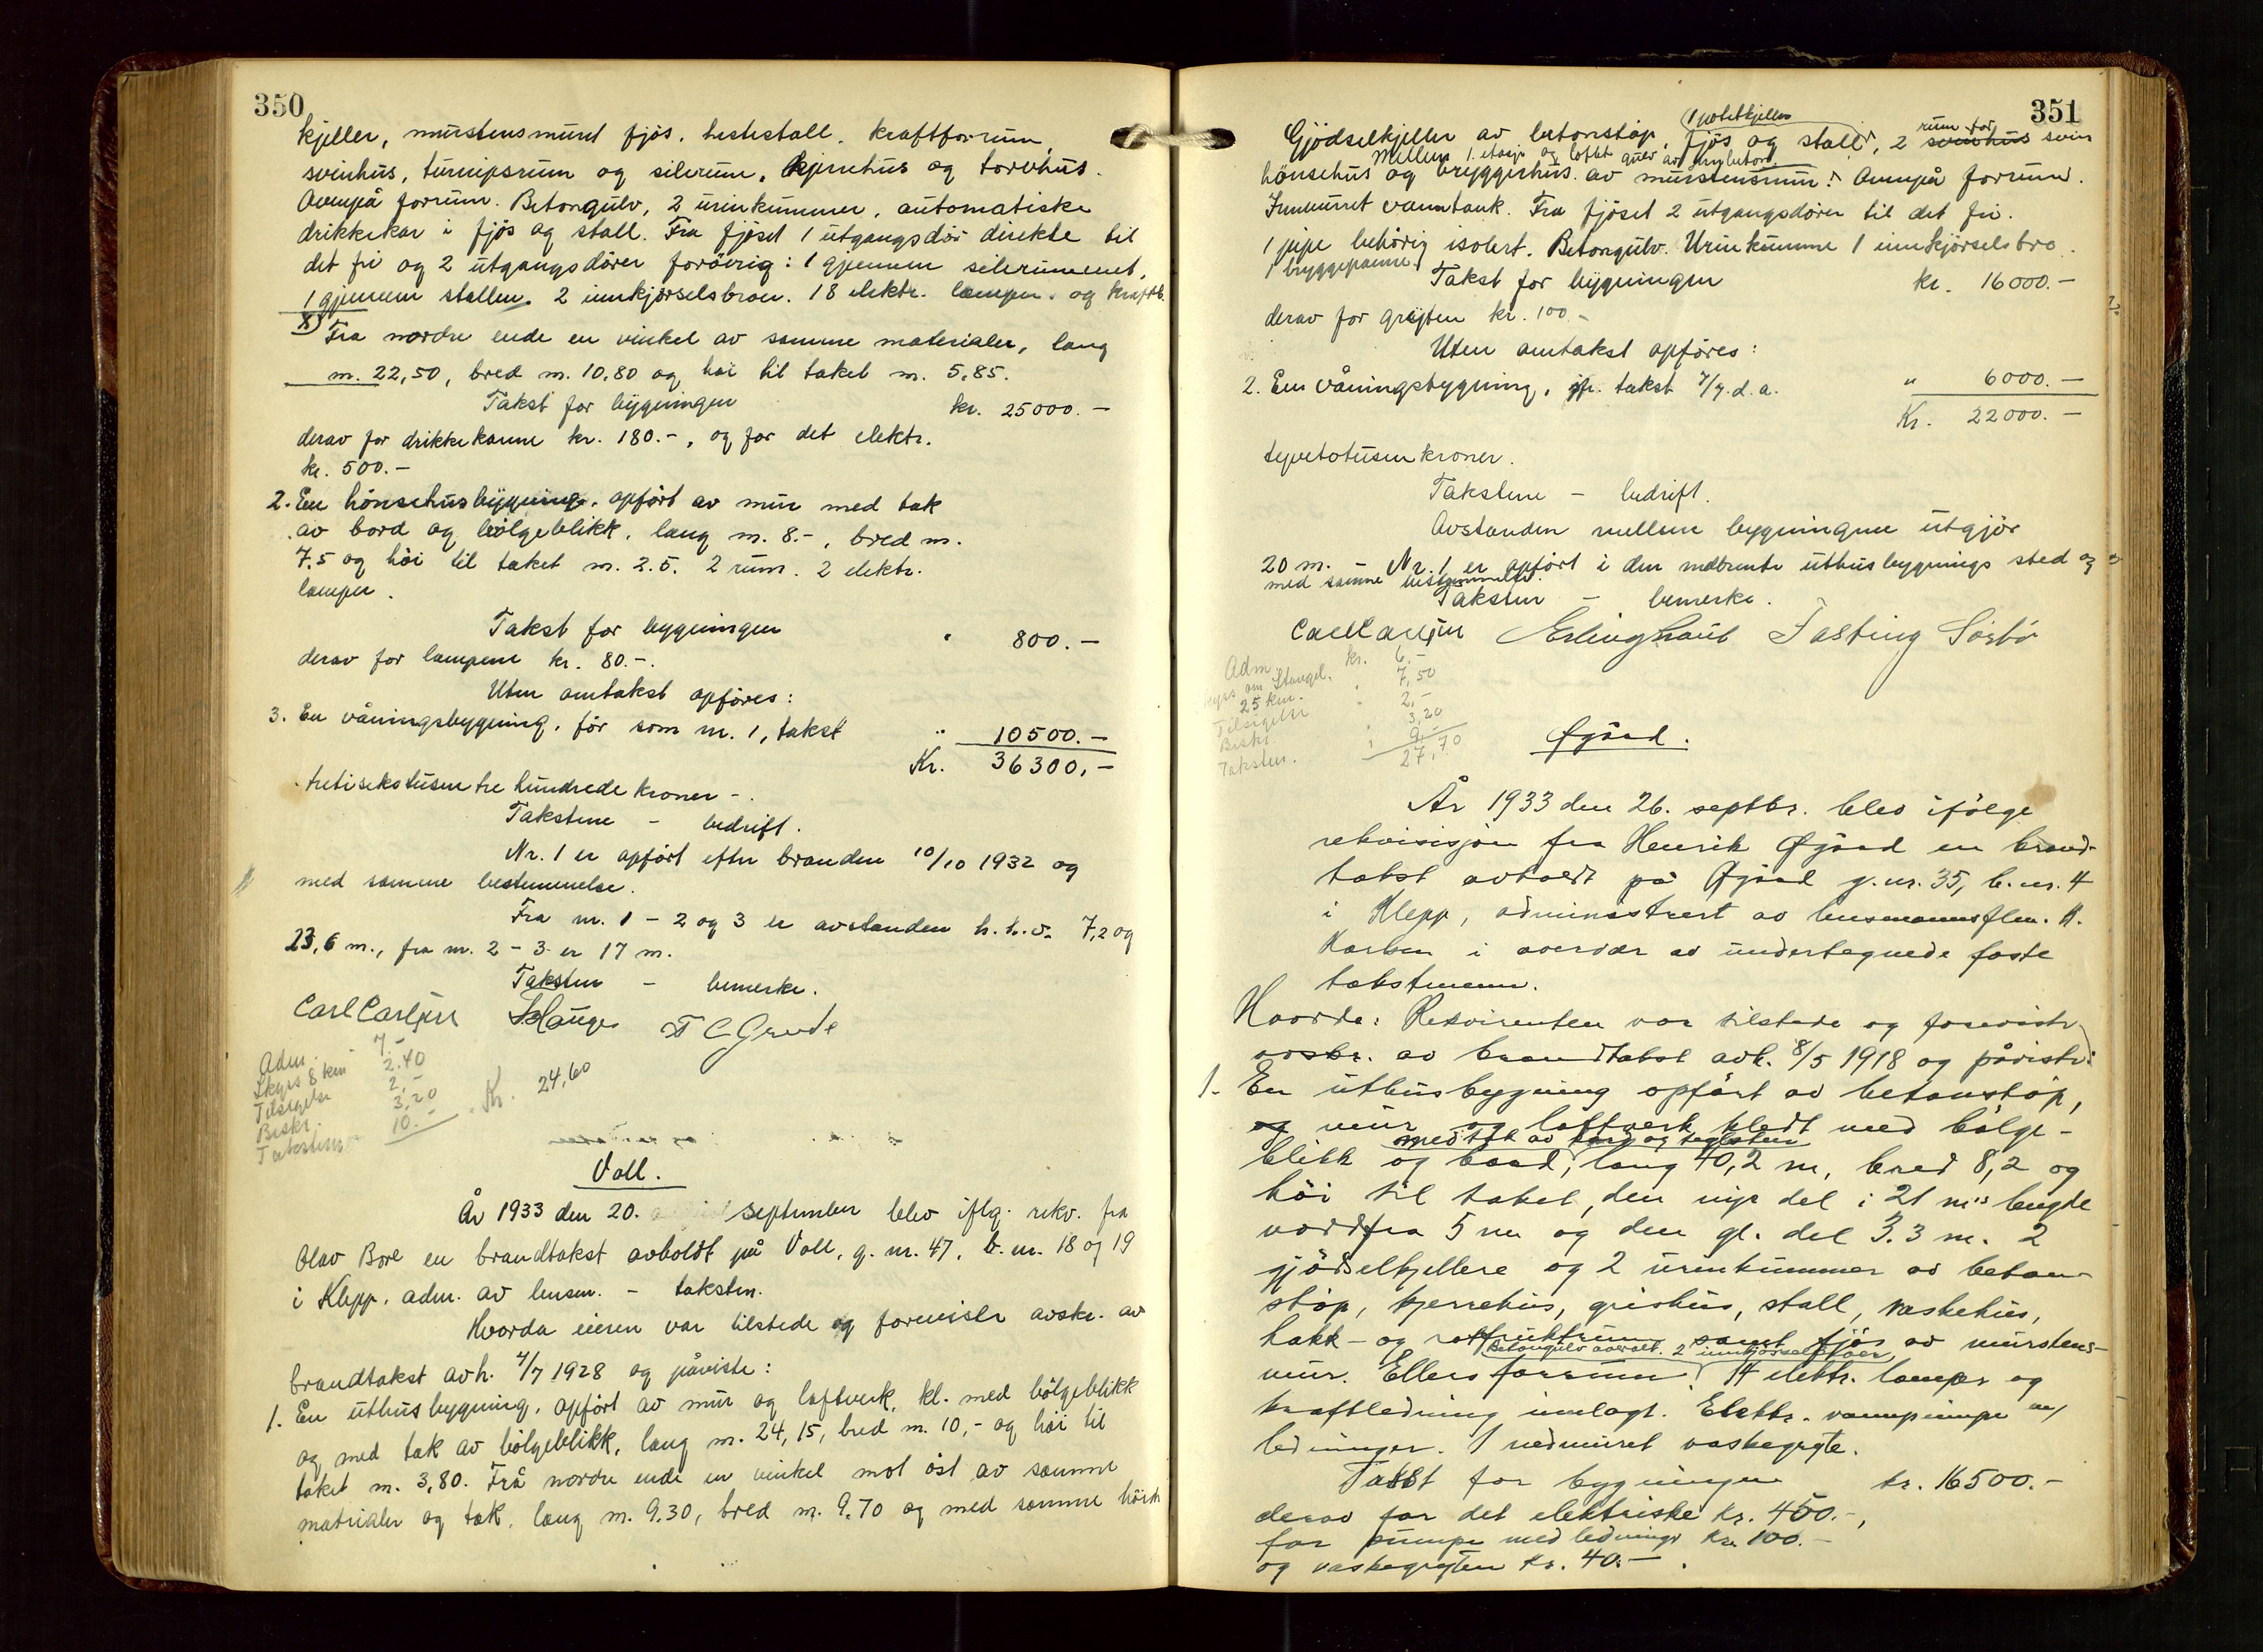 350
kjeller, murstensmuret fjøs, hestestall, kraftforrum,
svinhus, turnipsrum og silorum, kjerrehus og torvhus.
Ovenpå forrum. Betongulv, 2 urinkummer, automatiske
drikkekar i fjøs og stall. Fra fjøset 1 utgangsdör direkte til
det fri og 2 utgangsdörer forövrig: 1 gjennem silorummet,
1 gjennem stallen. 2 innkjörselsbroer. 18 elektr. lamper og kraftl.
x) Fra nordre ende en vinkel av samme materialer, lang
m. 22,50, bred m. 10,80 og höi til taket m. 5,85.
Takst for bygningen kr. 25000.-
derav for drikkekarene kr. 180.-, og for det elektr.
kr. 500.-
2. En hönsehusbygning, opfört av mur med tak
av bord og bölgeblikk, lang m. 8.-, bred m.
7.5 og höi til taket m. 2.5. 2 rum. 2 elektr.
lamper.
Takst for bygningen " 800.-
derav for lampene kr. 80.-.
Uten omtakst opföres:
3. En våningsbygning, för som nr. 1, takst " 10500.-
Kr. 36300,-
trettisekstusen tre hundrede kroner -.
Takstene - bedrift.
Nr. 1 er opfört efter branden 10/10 1932 og
med samme bestemmelse.
Fra nr. 1 - 2 og 3 er avstanden h.h.v. 7,2 og
23,6 m., fra nr. 2 - 3 er 17 m.
Taksten - bemerke.
Carl Carlsen Hauge T C Grude
Adm. 7.-
Skyss 8 km 2.40
Tilsigelse 2,-
Beskr. 3,20
Takstm. 10.-
Kr. 24,60
Voll.
År 1933 den 20. september blev iflg. rekv. fra
Olav Bore en brandtakst avholdt på Voll, g. nr. 47, b. nr. 18 og 19
i Klepp, adm. av lensm. - takstm.
Hvorda eieren var tilstede og foreviste avskr. av
brandtakst avh. 4/7 1928 og påviste:
1. En uthusbygning, opfört av mur og loftverk, kl. med bölgeblikk
og med tak av bölgeblikk, lang m. 24,15, bred m. 10,- og höi til
taket m. 3,80. Frå nordre ende en vinkel mot öst av samme
materialer og tak, lang m. 9.30, bred m. 9.70 og med samme höide
351
1 potetkjeller rum for
Gjödselkjeller av betonstöp, fjös og stall, 2 svinhus svin
Mellem 1. etasje og loftet gulv av
hönsehus og bryggerhus av murstensmur. Ovenpå forrum.
Innmurret vanntank. Fra fjöset 2 utgangsdörer til det fri.
1 pipe behörig isolert. Betongulv. Urinkumme 1 innkjörselsbro.
1 bryggepanne.
Takst for bygningen kr. 16000.-
derav for gryten kr. 100.-
Uten omtakst opföres:
2. Em våningsbygning, jfr. takst 4/7. d. a. " 6000.-
Kr. 22000.-
tyvetotusen kroner.
Takstene - bedrift.
Avstanden mellem bygningene utgjör
20 m. - Nr. 1 er opfört i den nedbrente uthusbygnings sted og
med samme bestemmelse.
Taksten - bemerke.
Carl Carlsen Erling Traub Tasting Sörbö
Adm. kr. 6.-
skyss om Stangel. 7,50
25 km.
Tilsigelse " 2,-
Beskr. " 3,20
Takstm. " 9.-
27,70
Øgård.
År 1933 den 26. septbr. blev ifölge
rekvisisjon fra Henrik Øgård en brand-
takst avholdt på Øgård g. nr. 35, b. nr. 4
i Klepp, administrert av lensmannsflm. K.
Karlsen i overvær av undertegnede faste
takstmenn.
Hvorda: Rekvirenten var tilstede og foreviste
avskr. av brandtakst avh. 8/5 1918 og påviste:
1. En uthusbygning opfört av betonstöp,
og mur og loftverk kledt med bölge-
med tak av bord og teglsten
blikk og bord, lang 40,2 m, bred 8,2 og
höi til taket, den nye del i 21 m's lengde
nordfra 5 m og den gl. del 3.3 m. 2
gjödselkjellere og 2 urinkummer av beton-
stöp, kjerrehus, grishus, stall, vaskehus,
hakk- og rotfruktrum samt fjös av murstens-
Betongulv overalt. 2 innkjörselsbroer
mur. Ellers forrum. 14 elektr. lamper og
kraftledning innlagt. Elektr. vannpumpe m/
ledninger. 1 nedmuret vaskegryte.
Takst for bygningen kr. 16500.-
derav for det elektriske kr. 450.-,
for pumpe med ledninger kr. 100.-
og vaskegryten kr. 40.-.